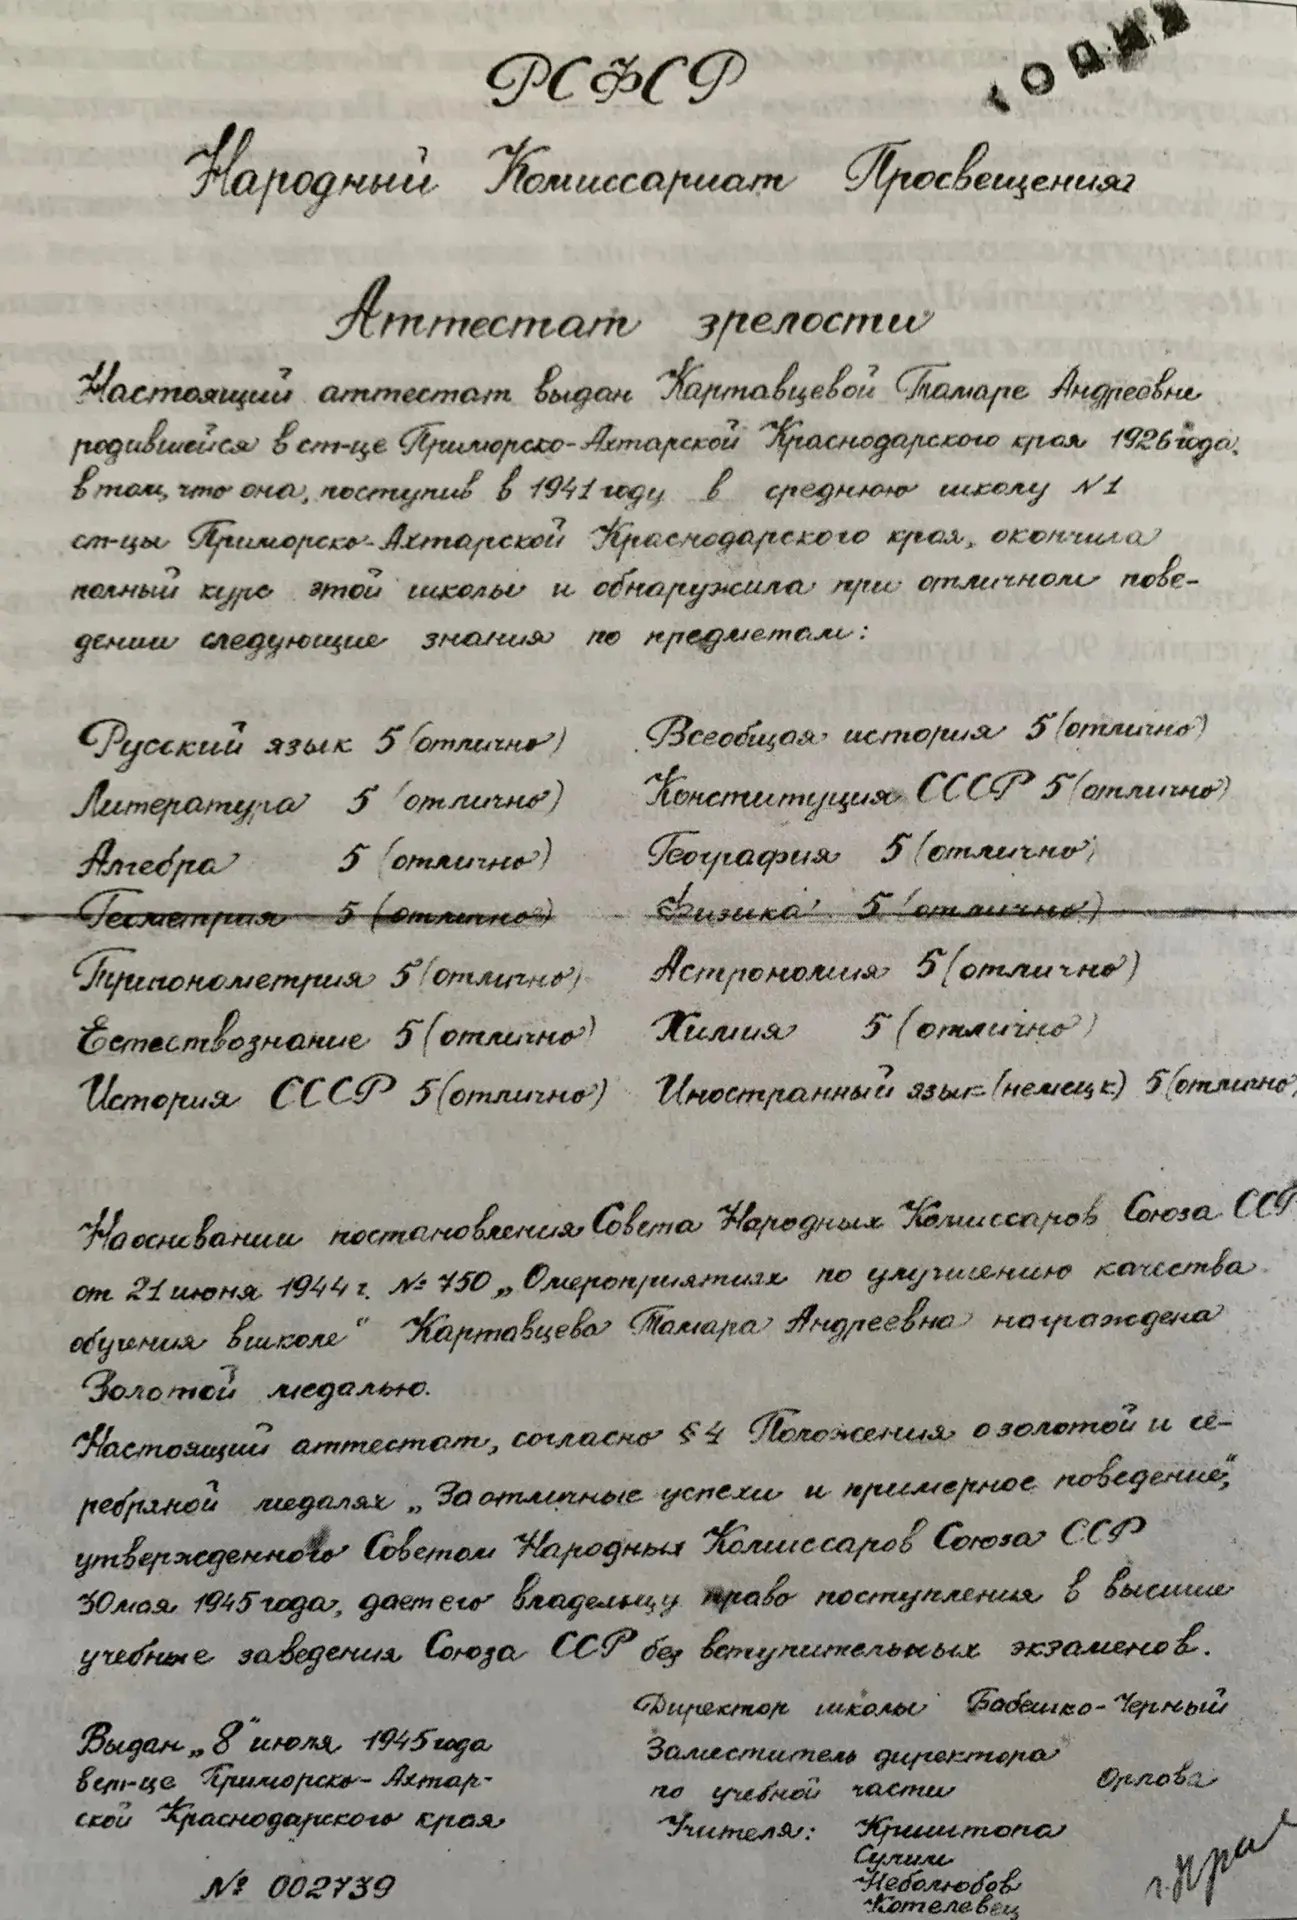 КОПИЯ
РСФСР
Народный Комиссариат Просвещения
Аттестат зрелости
Настоящий аттестат выдан Картавцевой Тамаре Андреевне
родившейся в ст-це Приморско-Ахтарской Краснодарского края 1926 года,
в том, что она, поступив в 1941 году в среднюю школу №1
ст-цы Приморско-Ахтарской Краснодарского края, окончила
полный курс этой школы и обнаружила при отличном пове-
дении следующие знания по предметам:
Русский язык 5 (отлично)
Литература 5 (отлично)
Алгебра 5 (отлично)
Геометрия 5 (отлично)
Тригонометрия 5 (отлично)
Естествознание 5 (отлично)
История СССР 5 (отлично)
Всеобщая история 5 (отлично)
Конституция СССР 5 (отлично)
География 5 (отлично)
Физика 5 (отлично)
Астрономия 5 (отлично)
Химия 5 (отлично)
Иностранный язык (немецк) 5 (отлично)
На основании постановления Совета Народных Комиссаров Союза ССР
от 21 июня 1944 г. № 750 „О мероприятиях по улучшению качества
обучения в школе“ Картавцева Тамара Андреевна награждена
Золотой медалью.
Настоящий аттестат, согласно § 4 Положения о золотой и се-
ребряной медалях „За отличные успехи и примерное поведение“,
утвержденного Советом Народных Комиссаров Союза ССР
30 мая 1945 года, дает его владельцу право поступления в высшие
учебные заведения Союза ССР без вступительных экзаменов.
Выдан „8“ июля 1945 года
в ст-це Приморско-Ахтар-
ской Краснодарского края
№ 002739
Директор школы Бабешко-Черный
Заместитель директора
по учебной части Орлова
Учителя: Криштопа
Сулим
Неболюбов
Котелевец